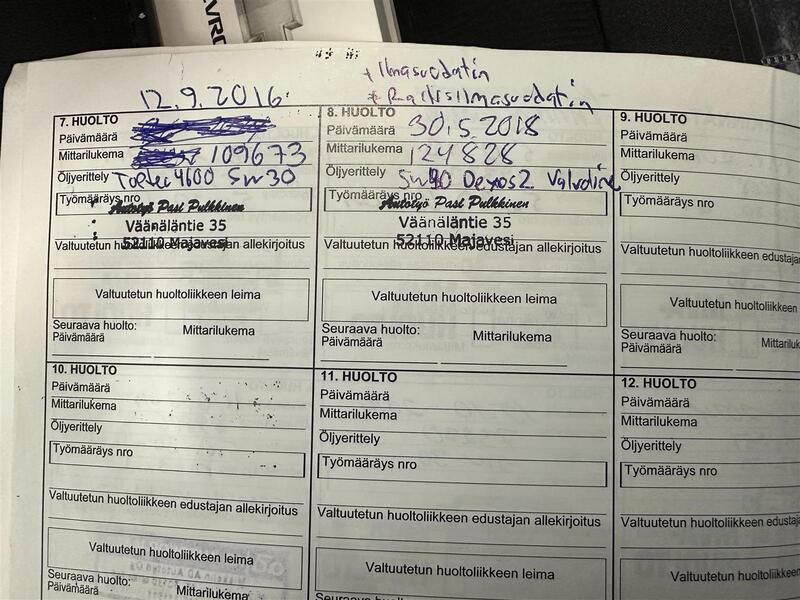 12.9.2016
+ Ilmasuodatin
+ Raitisilmasuodatin
7. HUOLTO
Päivämäärä
Mittarilukema 109673
Öljyerittely Toptec 4600 5w30
Työmääräys nro
Autotyö Pasi Pulkkinen
Väänäläntie 35
52110 Majavesi
Valtuutetun huoltoliikkeen edustajan allekirjoitus
Valtuutetun huoltoliikkeen leima
Seuraava huolto:
Päivämäärä
Mittarilukema
8. HUOLTO
Päivämäärä 30.5.2018
Mittarilukema 124828
Öljyerittely Dexos2 Valvoline
Työmääräys nro
Autotyö Pasi Pulkkinen
Väänäläntie 35
52110 Majavesi
Valtuutetun huoltoliikkeen edustajan allekirjoitus
Valtuutetun huoltoliikkeen leima
Seuraava huolto:
Päivämäärä
Mittarilukema
9. HUOLTO
Päivämäärä
Mittarilukema
Öljyerittely
Työmääräys nro
Valtuutetun huoltoliikkeen edustajan
Valtuutetun huoltoliikkeen
Seuraava huolto:
Päivämäärä
Mittariluk
10. HUOLTO
Päivämäärä
Mittarilukema
Öljyerittely
Työmääräys nro
Valtuutetun huoltoliikkeen edustajan allekirjoitus
Valtuutetun huoltoliikkeen leima
Seuraava huolto:
Päivämäärä
Mittarilukema
11. HUOLTO
Päivämäärä
Mittarilukema
Öljyerittely
Työmääräys nro
Valtuutetun huoltoliikkeen edustajan allekirjoitus
Valtuutetun huoltoliikkeen leima
Seuraava huolto:
Päivämäärä
Mittarilukema
12. HUOLTO
Päivämäärä
Mittarilukema
Öljyerittely
Työmääräys nro
Valtuutetun huoltoliikkeen edustaja
Valtuutetun huoltoliikkeen